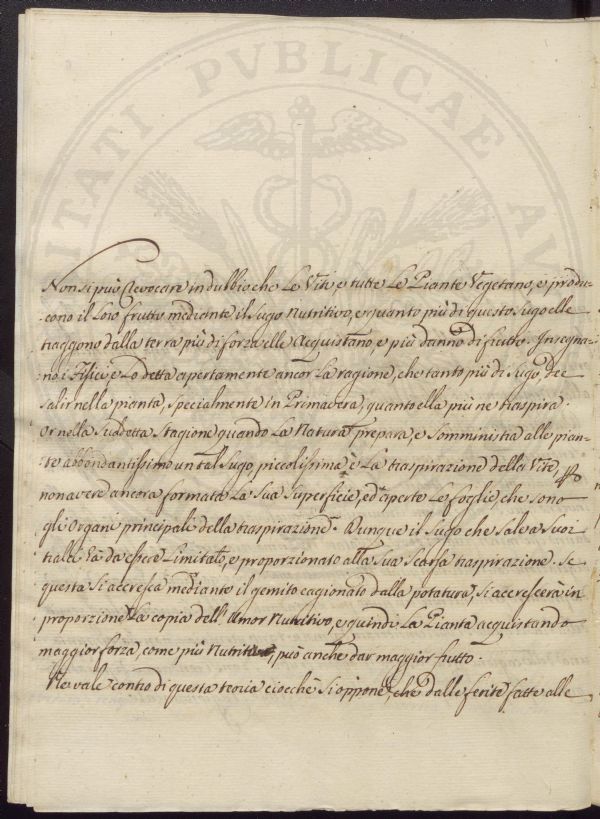 PVBLICAE
Non si può revocare in dubbio che le Viti e tutte le Piante Vegetano, e produ-
cono il loro frutto mediante il Sugo Nutritivo, e quanto più di questo Sugo elle
traggono dalla terra più di forza elle acquistano, e più danno di frutto. Insegna-
no i Fisici e lo detta apertamente ancor la ragione, che tanto più di Sugo, dee
salir nella pianta, specialmente in Primavera, quanto ella più ne traspira.
Or nella Suddetta Stagione quando la Natura prepara, e somministra alle pian-
te abbondantissimo un tal Sugo, piccolissima è la traspirazione della Vite, p
non avere ancora formata la Sua Superficie, ed aperte le foglie, che sono
gli Organi principali della traspirazione. Dunque il Sugo che Sale a Suoi
tralci và da essere Limitato, e proporzionato alla Sua Scarsa traspirazione. Se
questa Si accresca mediante il gemito cagionato dalla potatura, Si accrescerà in
proporzione la copia dell' Umor Nutritivo, e quindi La Pianta acquistando
maggior forza come più Nutrita, può anche dar maggior frutto.
Ne vale contro di questa teoria ciocchè Si oppone, che dalle ferite fatte alle